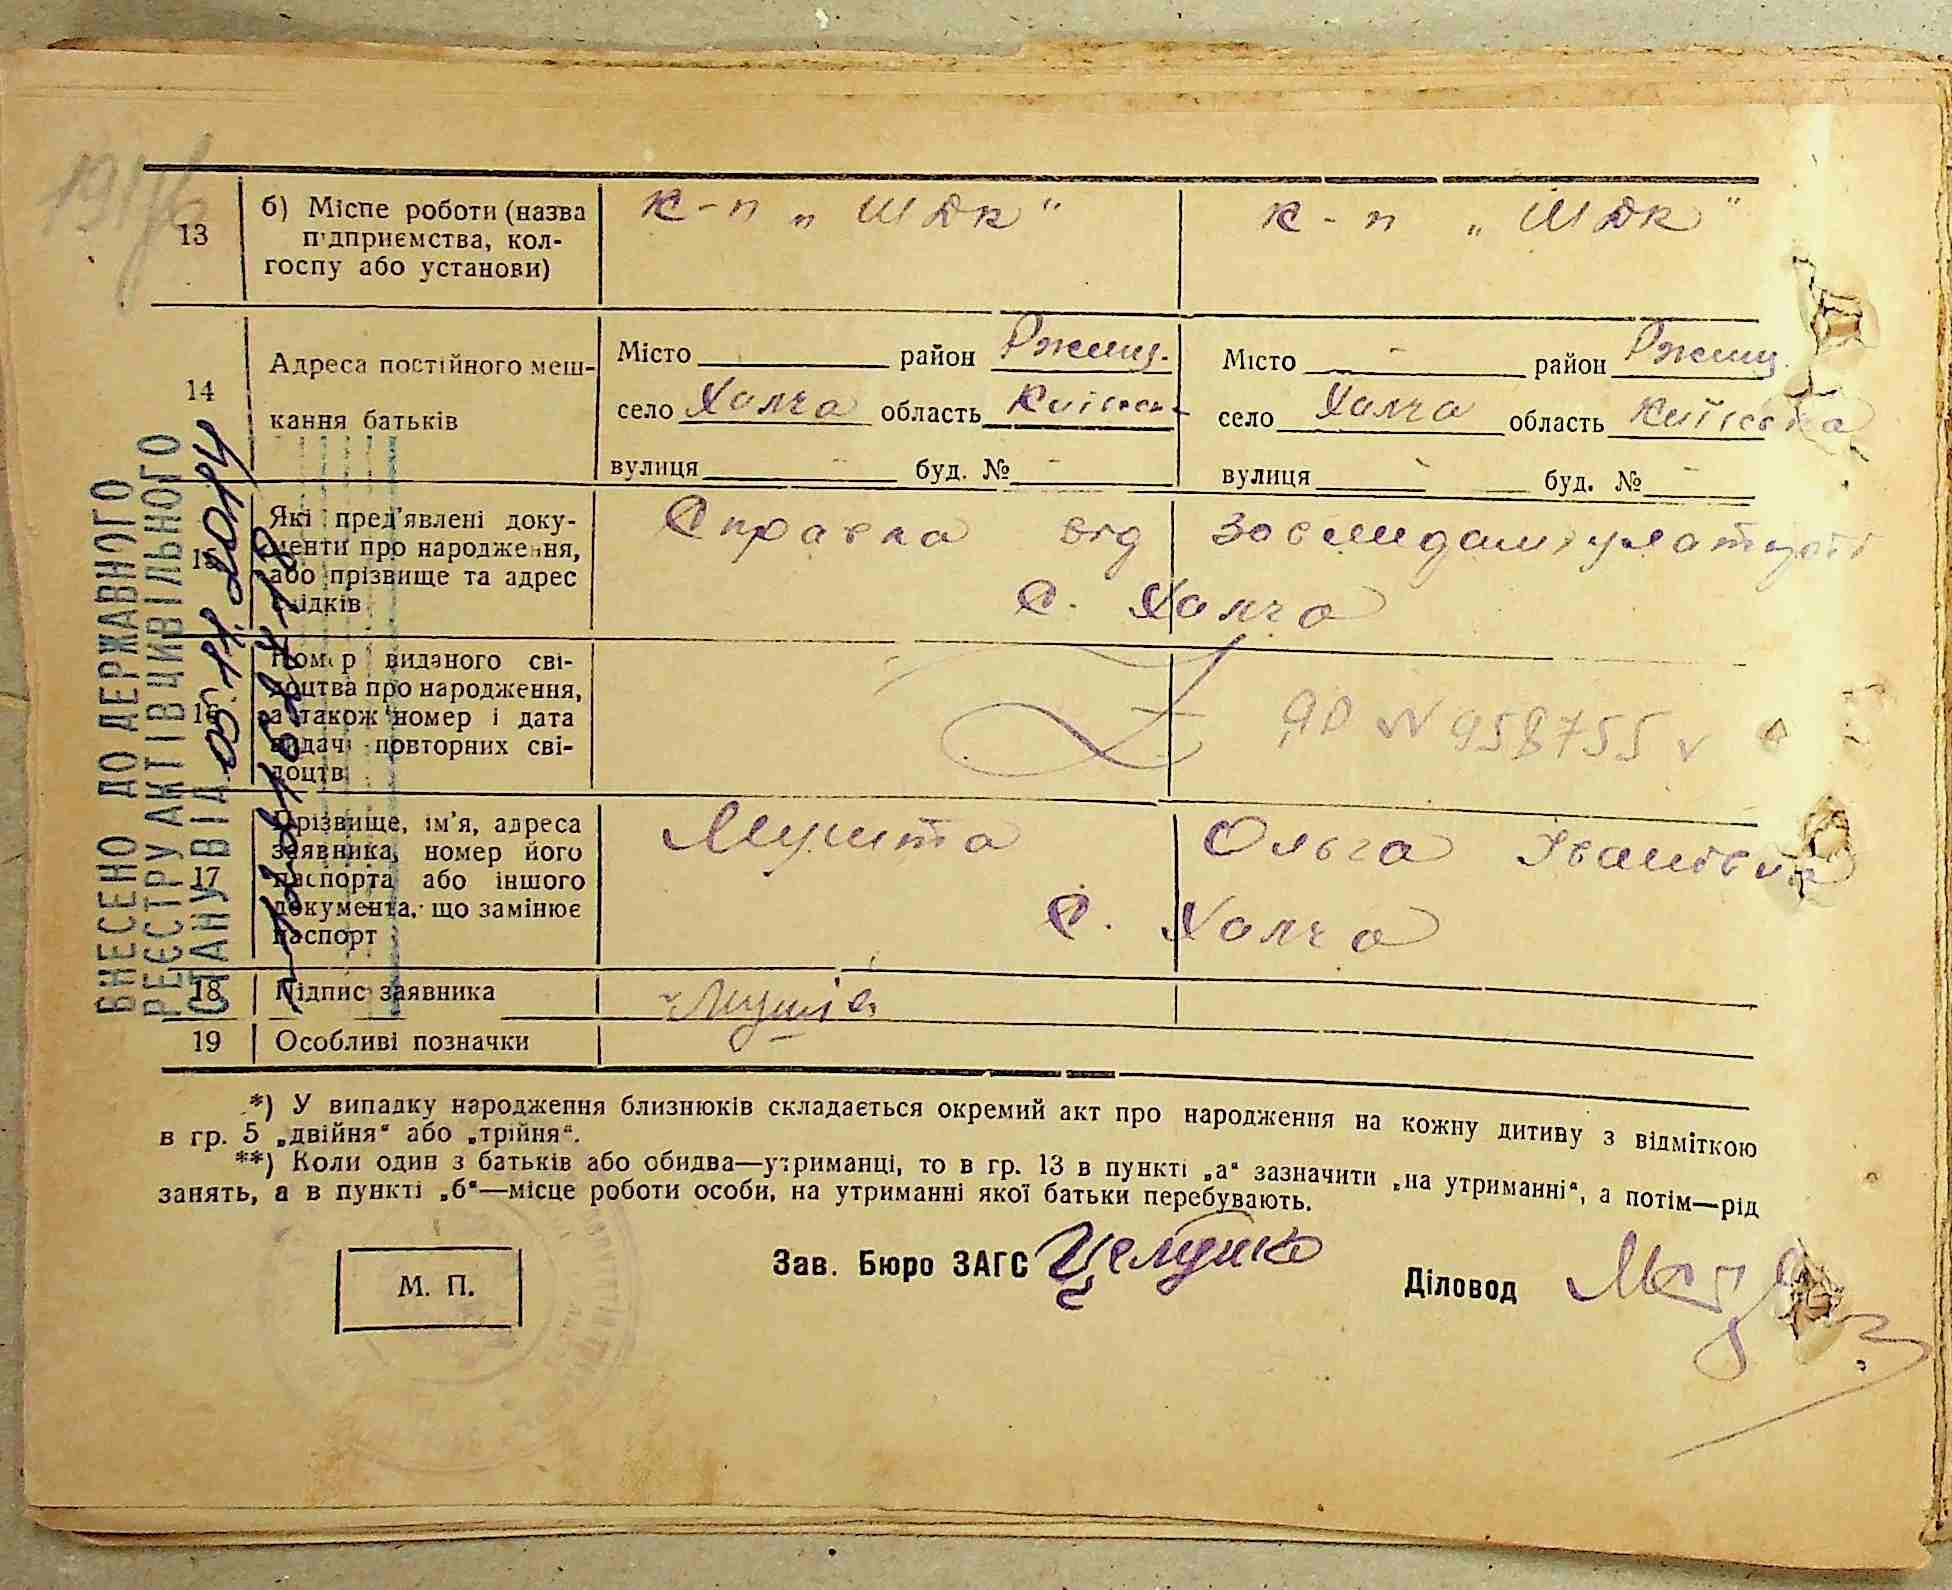 13
б) Місце роботи (назва
підприємства, кол-
госпу або установи)
к-п „ШДК"
к-п „ШДК"
14
Адреса постійного меш-
кання батьків
Місто район Ржищ.
село Халча область Київськ
вулиця - буд. № -
Місто - район Ржищ
село Халча область Київська
вулиця - буд. № -
15
Які пред'явлені доку-
менти про народження,
або прізвище та адрес
свідків
Справка від
с. Халча
16
Номер виданого сві-
доцтва про народження,
а також номер і дата
видачі повторних сві-
доцтв
ЯО № 958755 v
17
Прізвище, ім'я, адреса
заявника, номер його
паспорта або іншого
документа, що замінює
паспорт
Ольга Іванівна
с. Халча
18
Підпис заявника
19
Особливі позначки
*) У випадку народження близнюків складається окремий акт про народження на кожну дитину з відміткою
в гр. 5 „двійня“ або „трійня“.
**) Коли один з батьків або обидва—утриманці, то в гр. 13 в пункті „а“ зазначити „на утриманні“, а потім—рід
занять, а в пункті „б“—місце роботи особи, на утриманні якої батьки перебувають.
М. П.
Зав. Бюро ЗАГС
Діловод
ВНЕСЕНО ДО ДЕРЖАВНОГО
РЕЄСТРУ АКТІВ ЦИВІЛЬНОГО
СТАНУ ВІД